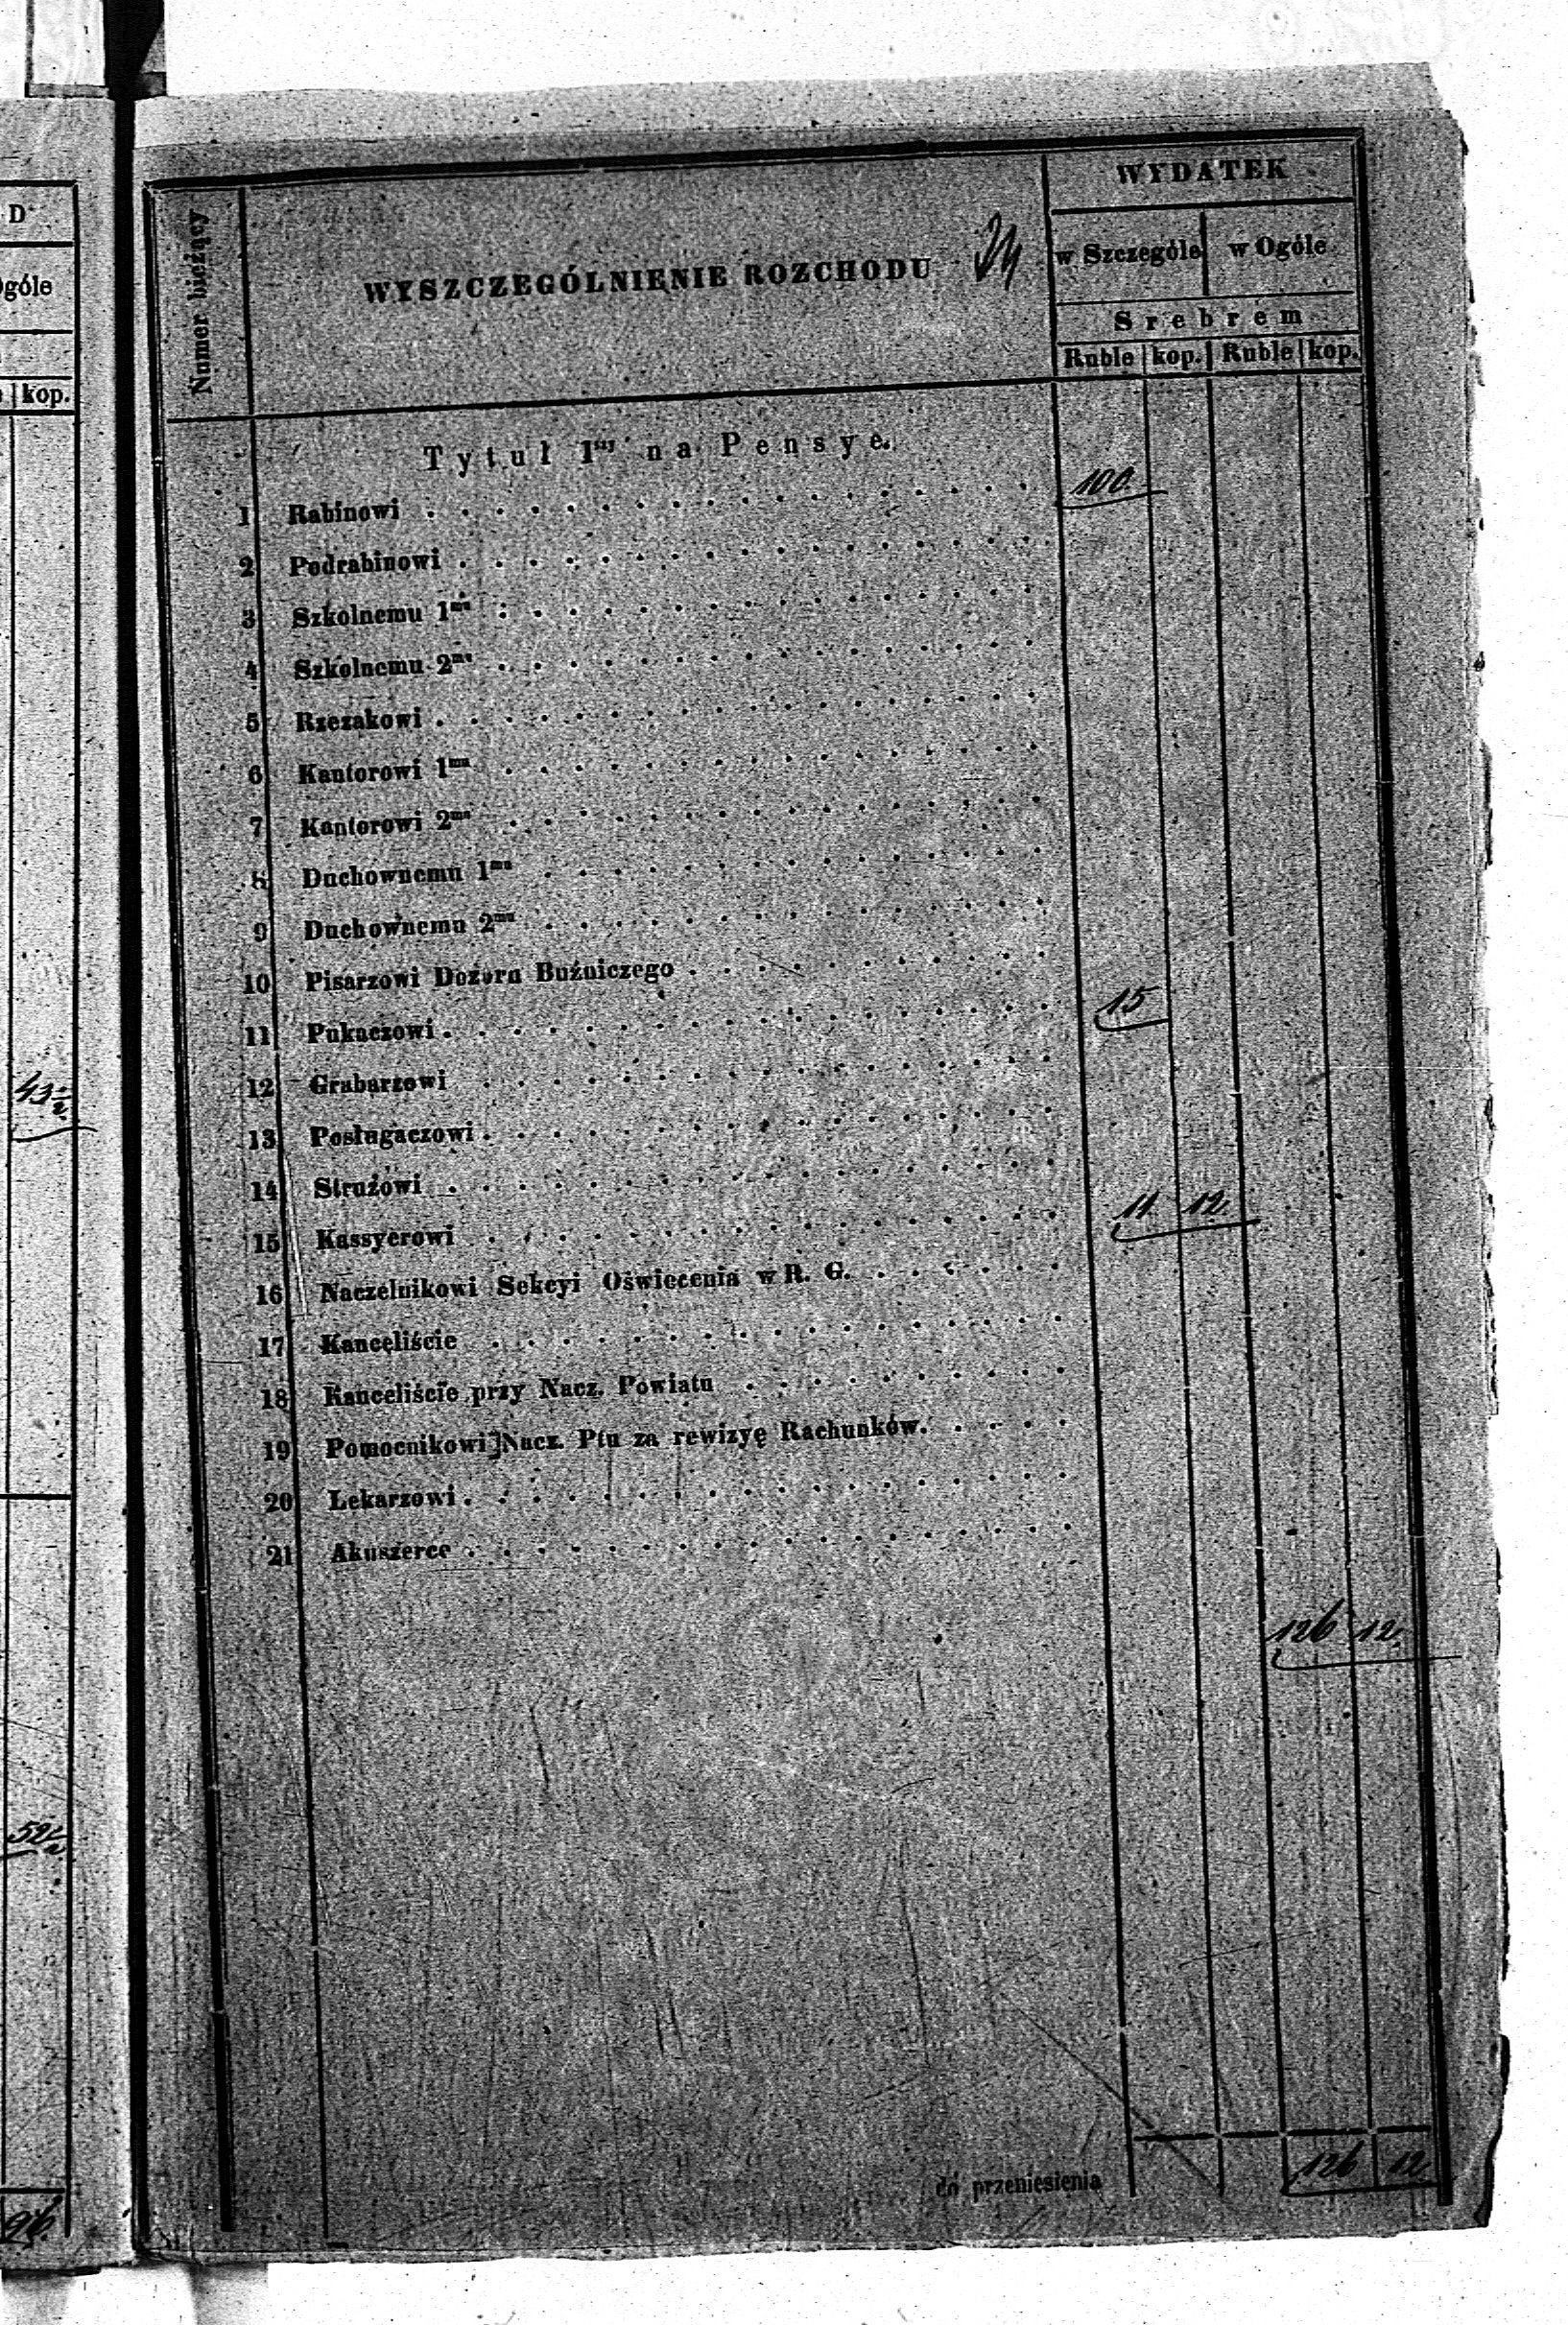 D
góle
kop.
43 1/2
52 1/2
96
Numer bieżący
WYSZCZEGÓLNIENIE ROZCHODU
WYDATEK
w Szczególe w Ogóle
Srebrem
Ruble kop. Ruble kop.
Tytuł 1szy na Pensye.
1 Rabinowi . . . . . . . . . . 100
2 Podrabinowi . . . . . . . . . .
3 Szkolnemu 1mu . . . . . . . . . .
4 Szkolnemu 2mu . . . . . . . . . .
5 Rzezakowi . . . . . . . . . .
6 Kantorowi 1mu . . . . . . . . . .
7 Kantorowi 2mu . . . . . . . . . .
8 Duchownemu 1mu . . . . . . . . . .
9 Duchownemu 2mu . . . . . . . . . .
10 Pisarzowi Dozoru Bużniczego . . . . . . . . . . 15
11 Pukaczowi . . . . . . . . . .
12 Grabarzowi . . . . . . . . . .
13 Posługaczowi . . . . . . . . . .
14 Stružowi . . . . . . . . . . 11 12
15 Kassyerowi . . . . . . . . . .
16 Naczelnikowi Sekcyi Oświecenia w R. G. . . . . . .
17 Kanceliście . . . . . . . . . .
18 Kanceliście przy Nacz. Powiatu . . . . . . . . . .
19 Pomocnikowi Nacz. Ptu za rewizyę Rachunków. . . . .
20 Lekarzowi . . . . . . . . . .
21 Akuszerce . . . . . . . . . .
126 12
do przeniesienia 126 12